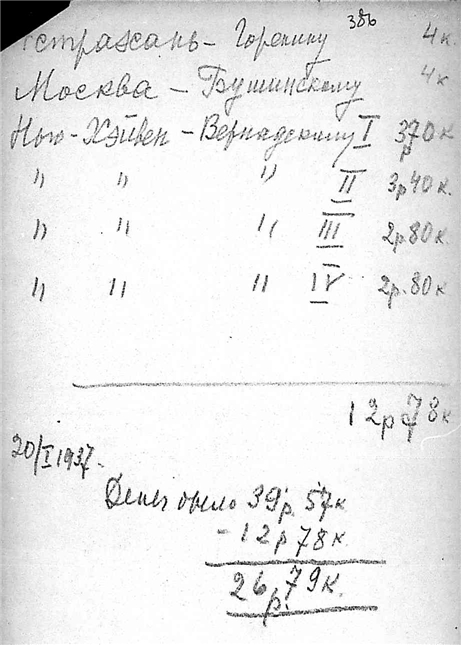 386
Астрахань – Горенину 4 к.
Москва – Бушинскому 4 к
Нью-Хэйвен – Вернадскому I 3р 70 к
〃 〃 〃 II 3р 40 к.
〃 〃 〃 III 2р 80 к.
〃 〃 〃 IV 2р. 80 к
12 р 78 к
20/I 1937.
Денег было 39 р. 57 к
- 12 р 78 к
26 р. 79 к.